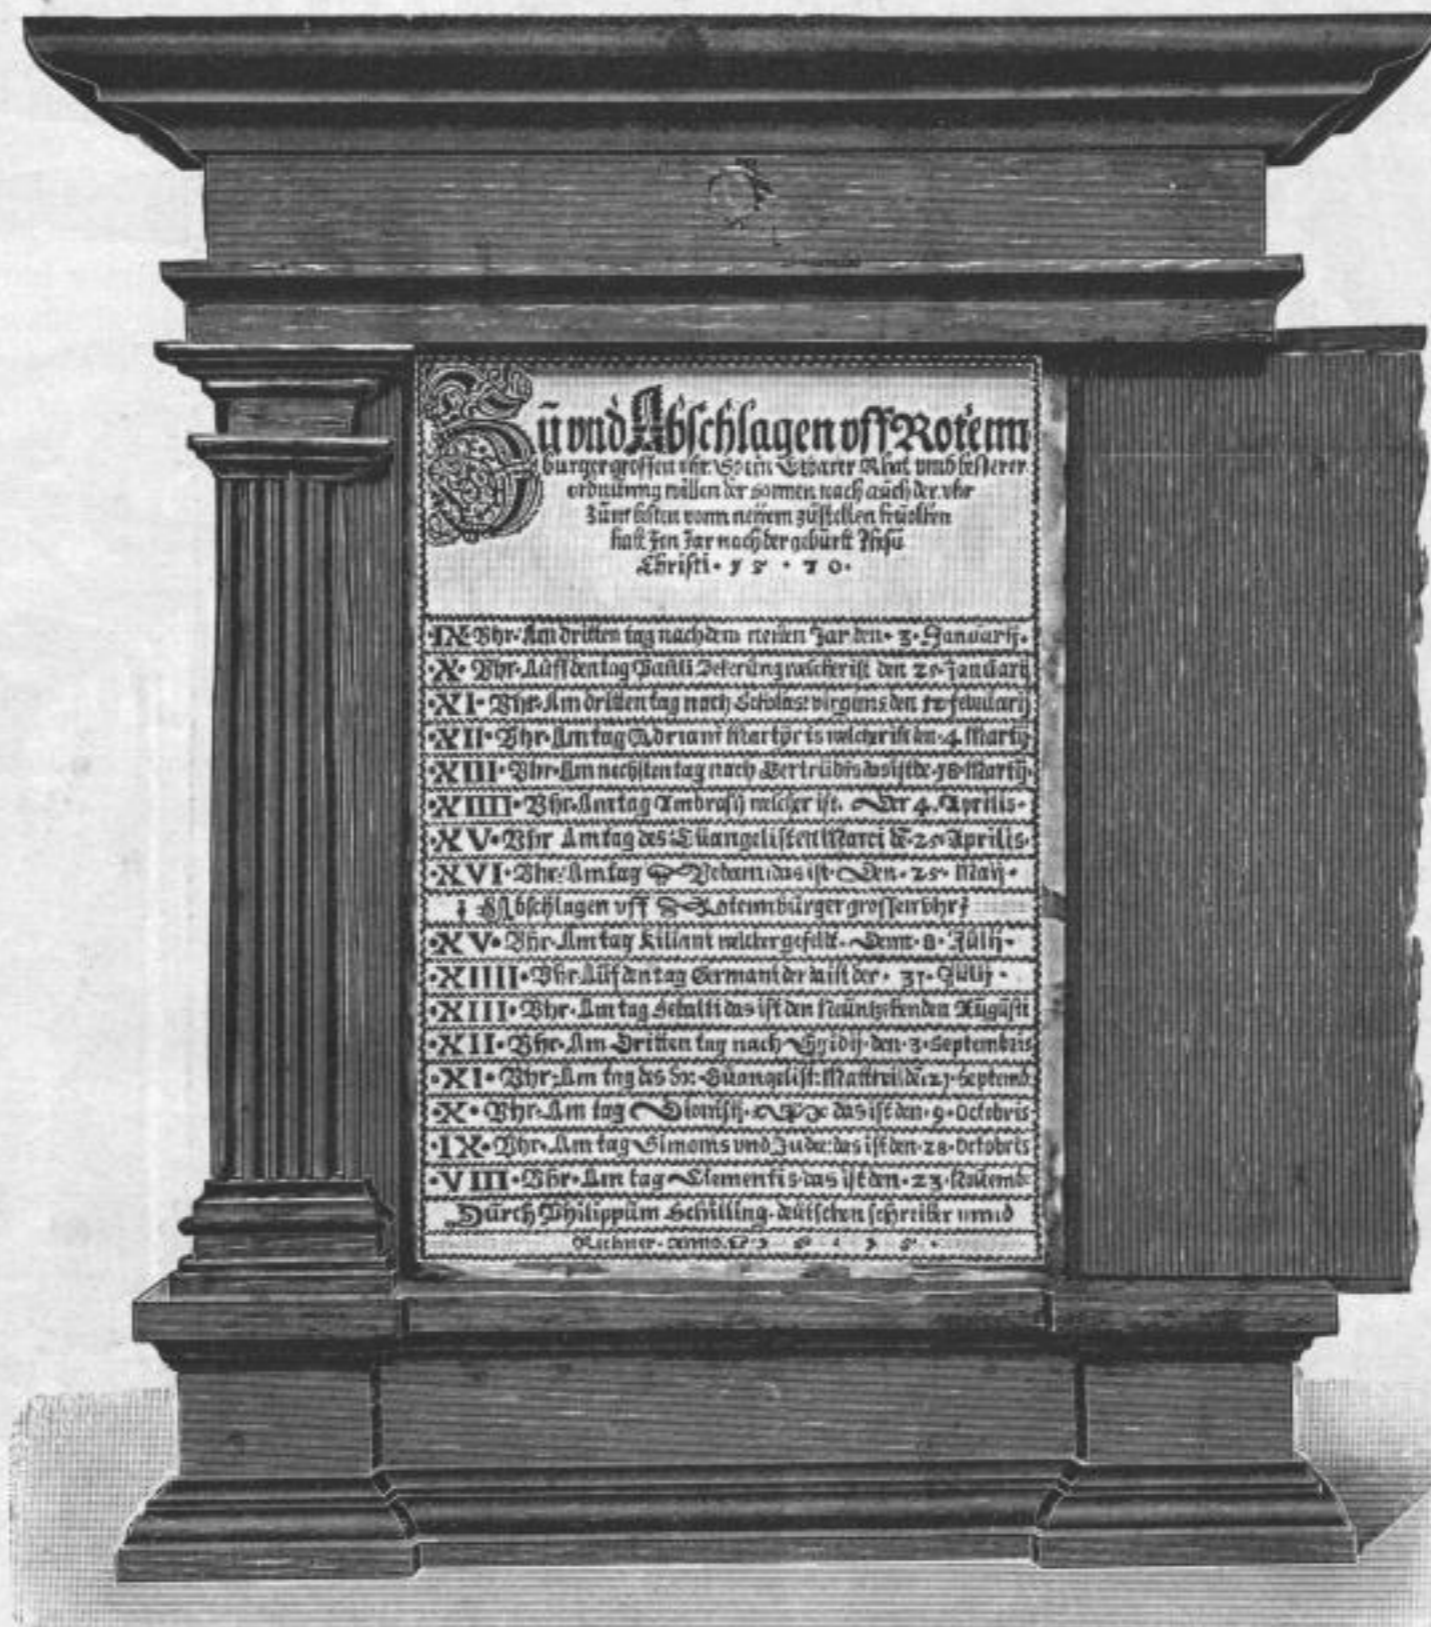 Zū vnd Abschlagen vff Rotenn
burger grossen vhr. So ein Erbarer Rhat vmb besserer
ordnūnng willen der sonnen nach aūch der vhr
Zūm besten vonn neūem zūstellen
hatt Jen Jar nach der gebūrtt Jhesu
Christi • 15 • 70 •
•IX• Vhr• Am dritten tag nach dem neūen Jar den• 3• Janūarij•
•X• Vhr• Aūff den tag Paūli Bekerūng welcher ist den 25 Janūarij
•XI• Vhr• Am dritten tag nach Scholast: virginis den 12 febrūarij
•XII• Vhr• Am tag Adriani Martyris welcher ist den •4• Martij
•XIII• Vhr• Am nechsten tag nach Gertrūdis das ist de• 18• Martij•
•XIIII• Vhr• Am tag Ambrosij welcher ist. Der 4. Aprilis•
•XV• Vhr Am tag des Eūangelisten Marci dē• 25• Aprilis•
•XVI• Vhr• Am tag Vrbani: das ist• Den• 25• Maij•
Abschlagen vff Rotennbūrger grossen vhr
•XV• Vhr• Am tag Kiliani welcher gefellt• Denn• 8• Jūlij•
•XIIII• Vhr• Aūf den tag Germani der da ist der• 31• Jūlij•
•XIII• Vhr• Am tag Sebalti das ist den Neūntzehenden Aūgūsti
•XII• Vhr• Am Dritten tag nach Egidij• den• 3• Septembris
•XI• Vhr• Am tag des Eūangelist: Matthei dē: 21• Septemb
•X• Vhr• Am tag Dionisij• das ist den• 9• Octobris•
•IX• Vhr• Am tag Simonis vnd Judæ: das ist den• 28• Octobris
•VIII• Vhr• Am tag Clementis das ist den• 23• Nouemb:
Dūrch Philippūm Schilling• deūtschen schreiber vnnd
Rechner• Anno•